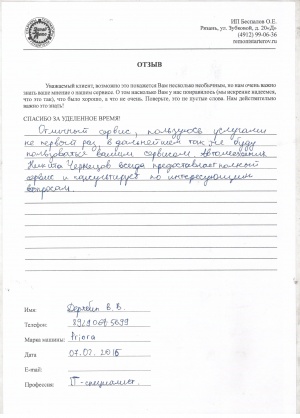 ИП Беспалов О.Е.
Рязань, ул. Зубковой, д. 20«Д»
(4912) 99-06-36
remontmasterov.ru
ОТЗЫВ
Уважаемый клиент, возможно это покажется Вам несколько необычным, но нам очень важно
знать ваше мнение о нашем сервисе. О том насколько Вам у нас понравилось (мы искренне надеемся,
что это так), что было хорошо, а что не очень. Поверьте, это не пустые слова. Нам действительно
важно это знать!
СПАСИБО ЗА УДЕЛЕННОЕ ВРЕМЯ!
Отличный сервис, пользуюсь услугами
не первый раз, в дальнейшем так же буду
пользоваться вашим сервисом. Автомеханик
Никита всегда предоставляет полный
сервис и консультирует по интересующим
вопросам.
Имя: В.В.
Телефон:
Марка машины: Priora
Дата 07.07.2015
E-mail:
Профессия: IT-специалист.